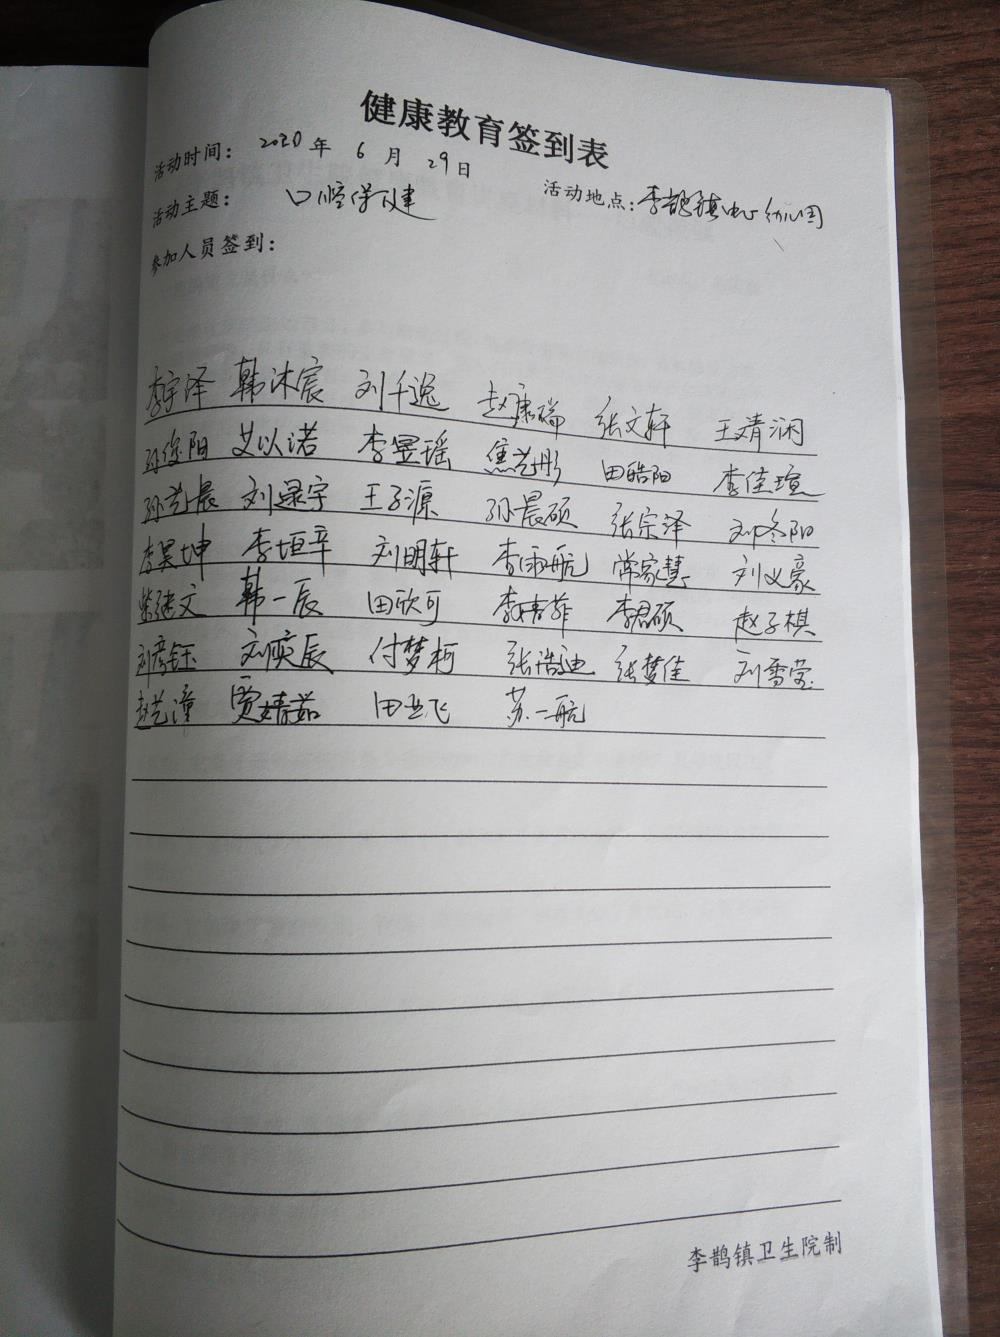 健康教育签到表
活动时间: 2020年 6月 29日
活动主题: 口腔保健 活动地点: 李鹊镇中心幼儿园
参加人员签到:
李宇泽 韩沐宸 刘千逸 赵康瑞 张文轩 王婧涧
孙俊阳 艾以诺 李昱瑶 焦艺彤 田皓阳 李佳瑄
孙艺晨 刘逯宇 王子源 孙晨硕 张宗泽 刘冬阳
李昊坤 李垣辛 刘明轩 李雨航 常家慧 刘义豪
柴继文 韩一辰 田欣可 李婧菲 李思硕 赵子棋
刘彦钰 刘奕辰 付梦柯 张浩迪 张梦佳 刘雪莹
赵艺潼 贾婧茹 田亚飞 苏一航
李鹊镇卫生院制